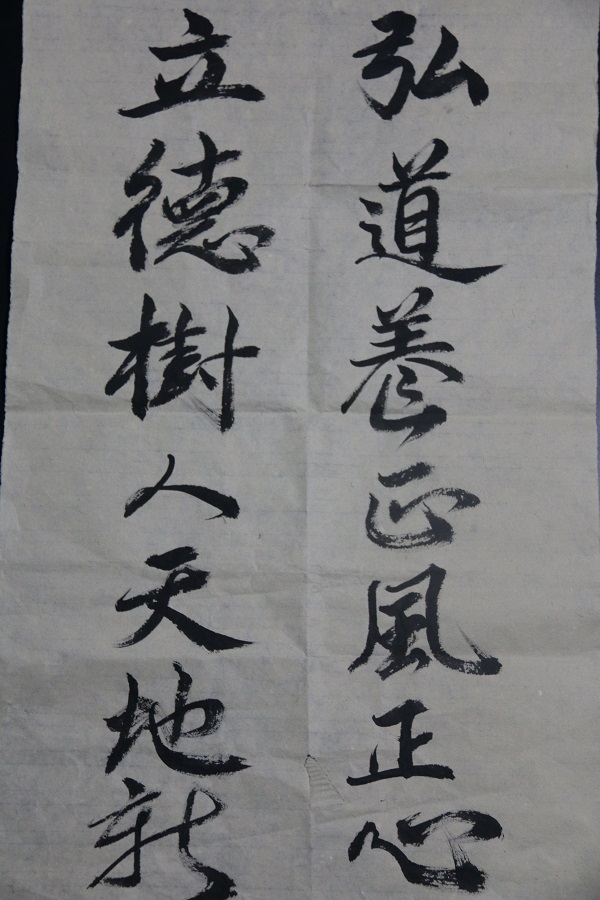 弘道養正風正心
立德樹人天地新